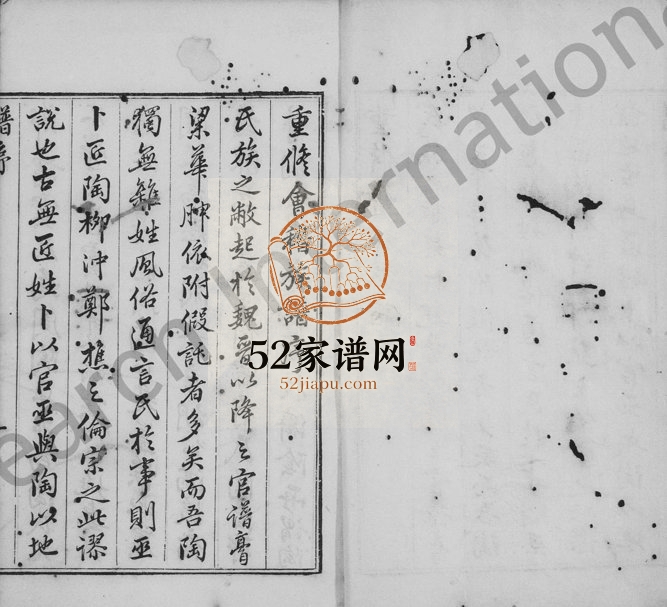 重修會稽族譜序
氏族之敝起於魏晉以降之官譜膏
梁華腴依附假託者多矣而吾陶
獨無雜姓風俗通言氏於事則巫
卜匠陶柳沖鄭樵之倫宗之此謬
說也古無匠姓卜以官巫與陶以地
譜序
一
52家谱网
52jiapu.com
earch International